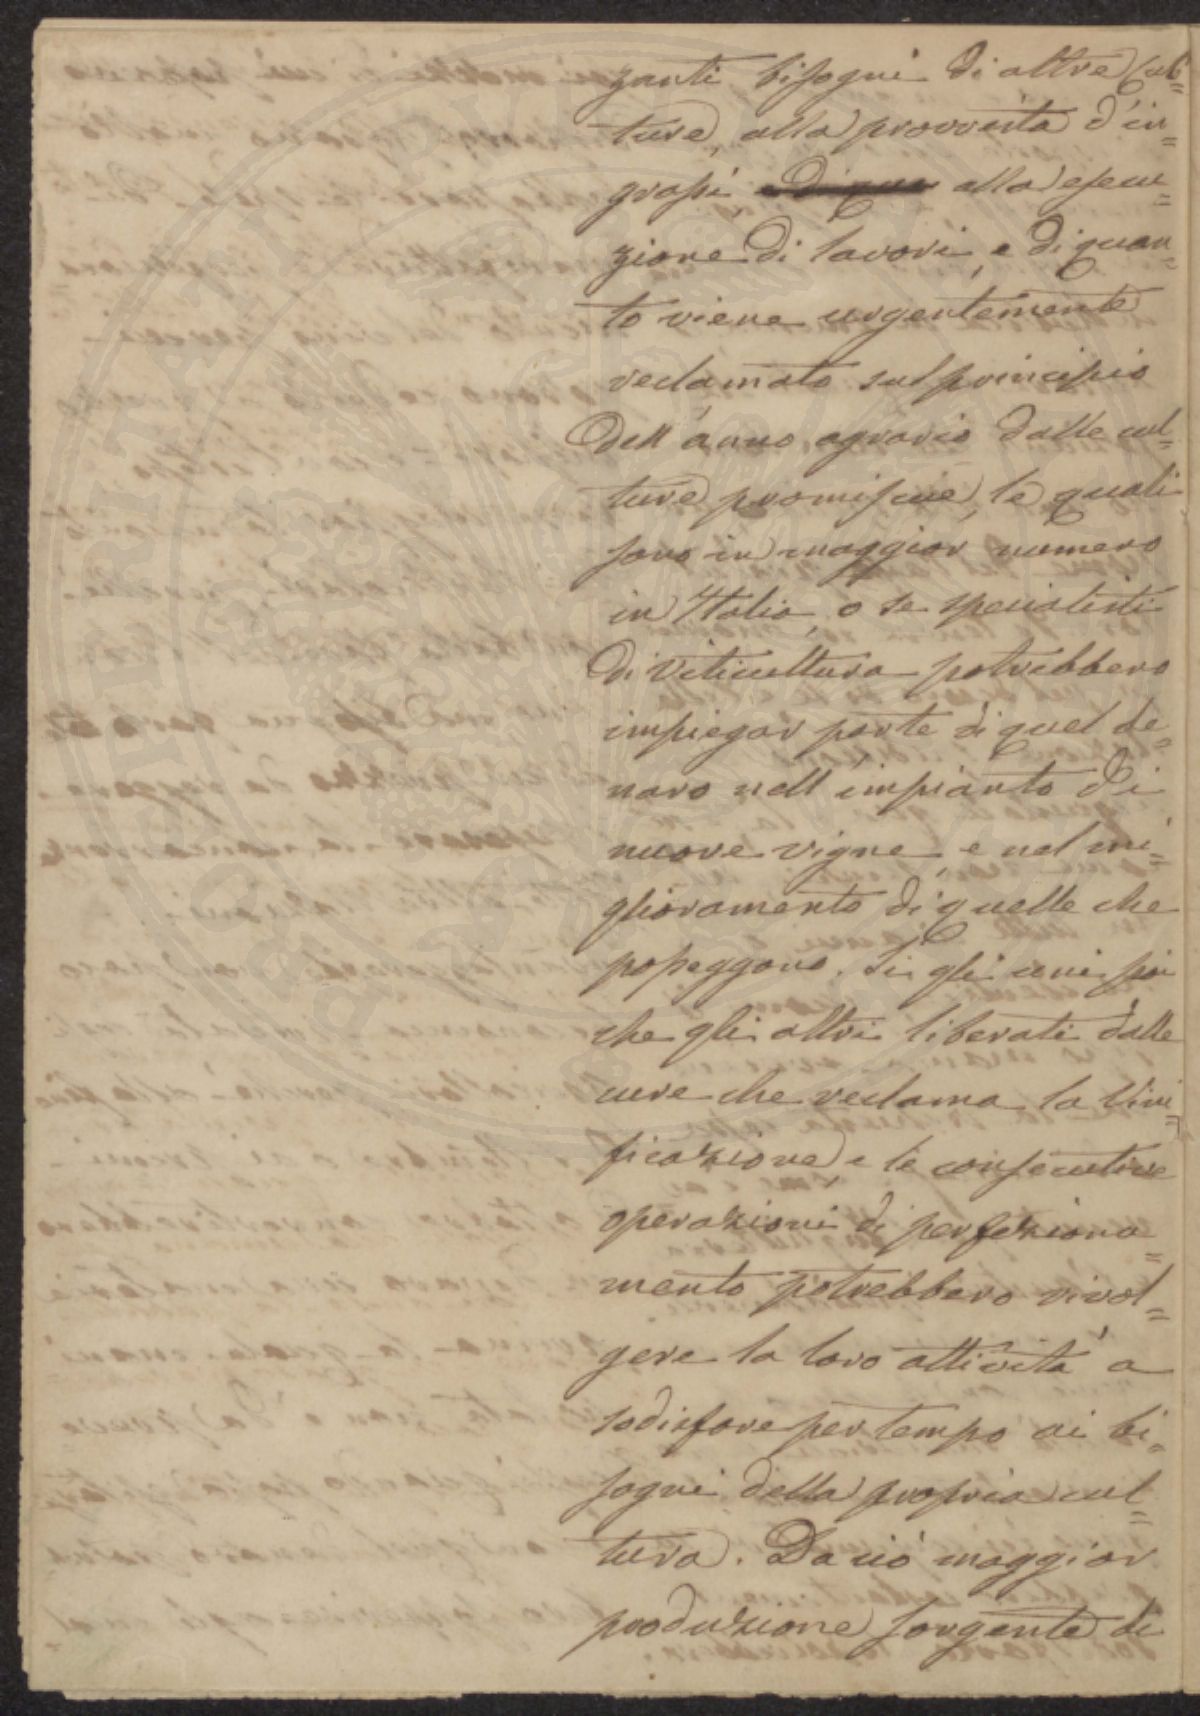 zanti bisogni di altre cul=
ture, alla provvista d'in=
grassi, alla esecu=
zione di lavori, e di quan=
to viene urgentemente
reclamato sul principio
dell'anno agrario dalle cul=
ture promiscue, le quali
sono in maggior numero
in Italia, o se specialisti
di Viticultura potrebbero
impiegar parte di quel de=
naro nell'impianto di
nuove vigne, e nel mi=
glioramento di quelle che
posseggono. Sì gli uni poi
che gli altri liberati dalle
cure che reclama la Vini=
ficazione, e le consecutive
operazioni di perfeziona=
mento potrebbero rivol=
gere la loro attività a
sodisfare per tempo ai bi=
sogni della propria cul=
tura. Da ciò maggior
produzione sorgente di